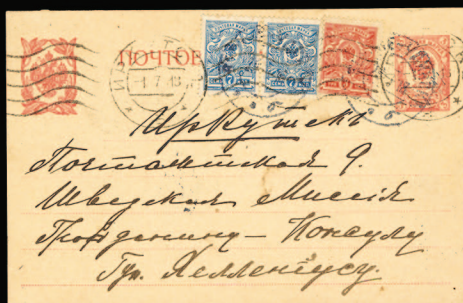 ПОЧТОВ
1 7 18
Иркутскъ
Почтамтская 9.
Шведская Миссія
Гражданину - Консулу
Гун. Хелленіусу.